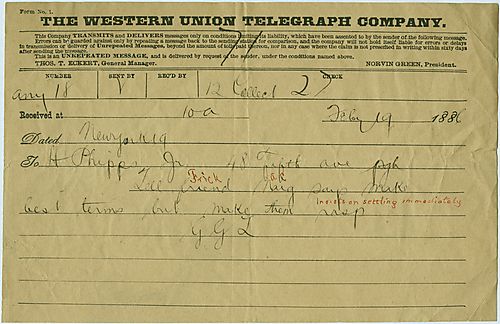 Form No. 1.
THE WESTERN UNION TELEGRAPH COMPANY.
This Company TRANSMITS and DELIVERS messages only on conditions limiting its liability, which have been assented to by the sender of the following message.
Errors can be guarded against only by repeating a message back to the sending station for comparison, and the company will not hold itself liable for errors or delays
in transmission or delivery of Unrepeated Messages, beyond the amount of tolls paid thereon, nor in any case where the claim is not presented in writing within sixty days
after sending the message.
This is an UNREPEATED MESSAGE, and is delivered by request of the sender, under the conditions named above.
THOS. T. ECKERT, General Manager. NORVIN GREEN, President.
NUMBER SENT BY REC'D BY CHECK
18 12 Collect 27
Received at 10 a Feby 19 1886
Dated New York 19
To H Phipps Jr 48 Fifth ave pgh
Frick
Tell friend says make
best terms but make them
insist on settling immediately